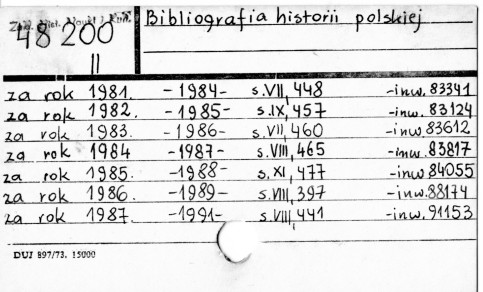 48 200
II
Bibliografia historii polskiej
za rok 1981. -1984- s.VII,448 -inw.83341
za rok 1982. -1985- s.IX,457 -inw.83124
za rok 1983. -1986- s.VII,460 -inw.83612
za rok 1984 -1987- s.VIII,465 -inw.83817
za rok 1985. -1988- s.XI,477 -inw.84055
za rok 1986. -1989- s.VIII,397 -inw.88174
za rok 1987. -1991- s.VIII,441 -inw.91153
DUJ 897/73. 15000